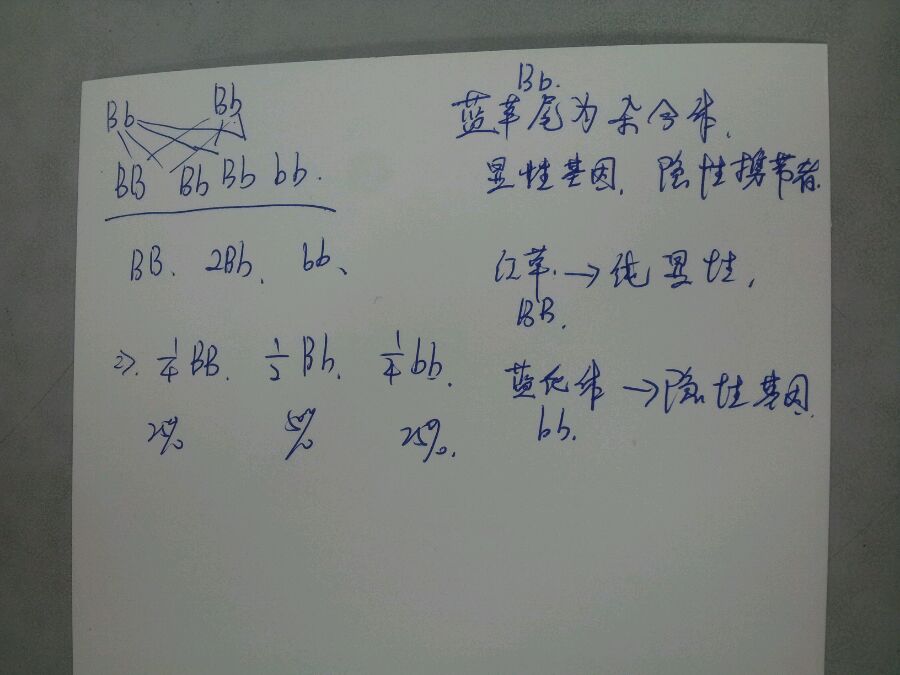 Bb Bb
BB Bb Bb bb.
BB. 2Bb. bb、
=>. 1/4 BB. 1/2 Bb. 1/4 bb.
25% 50% 25%.
Bb.
蓝草尾为杂合体.
显性基因. 隐性携带者.
红草.→纯显性,
BB.
蓝化体→隐性基因.
bb.